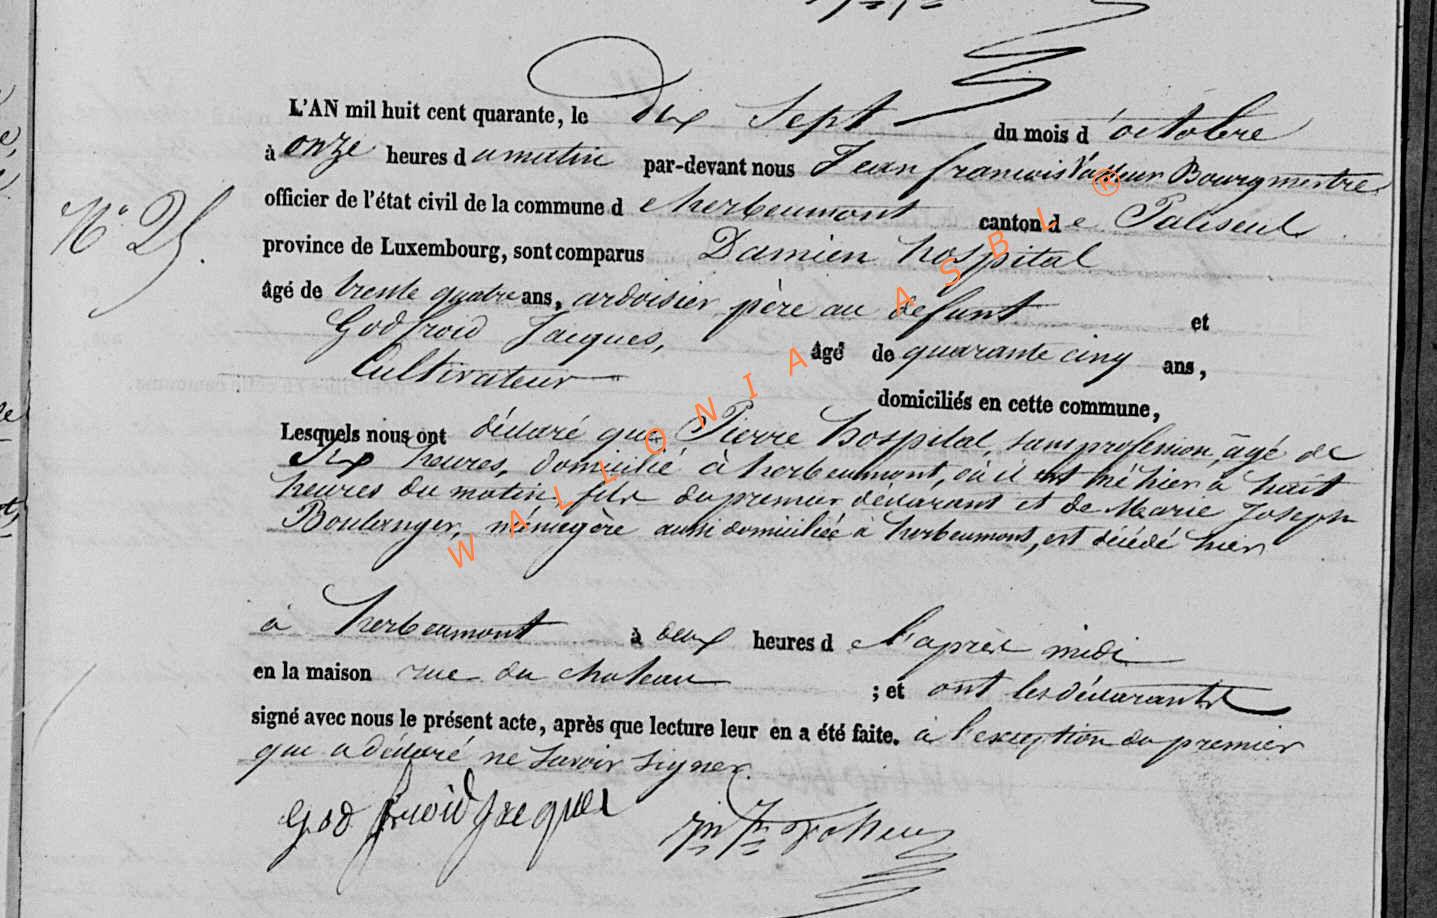 L'AN mil huit cent quarante, le Dix Sept du mois d'octobre
à onze heures d u matin par-devant nous Jean francois Bourgmestre
officier de l'état civil de la commune d'herbeumont canton de Paliseul
N° 25.
province de Luxembourg, sont comparus Damien hospital
âgé de trente quatre ans, ardoisier père au defunt et
Godfroid Jacques, âgé de quarante cinq ans,
Cultivateur
domiciliés en cette commune,
Lesquels nous ont déclaré que Pierre hospital, sans profession, âgé de
Six heures, domicilié à herbeumont, où il est né hier à huit
heures du matin fils du premier déclarant et de Marie Joseph
Boulanger, ménagère aussi domiciliée à herbeumont, est décédé hier
à herbeumont à deux heures de l'après midi
en la maison rue du chateau ; et ont les déclarants
signé avec nous le présent acte, après que lecture leur en a été faite. à l'exception du premier
que a déclaré ne savoir signer.
Godfroid Jacques
WALLONIA ASBL ®